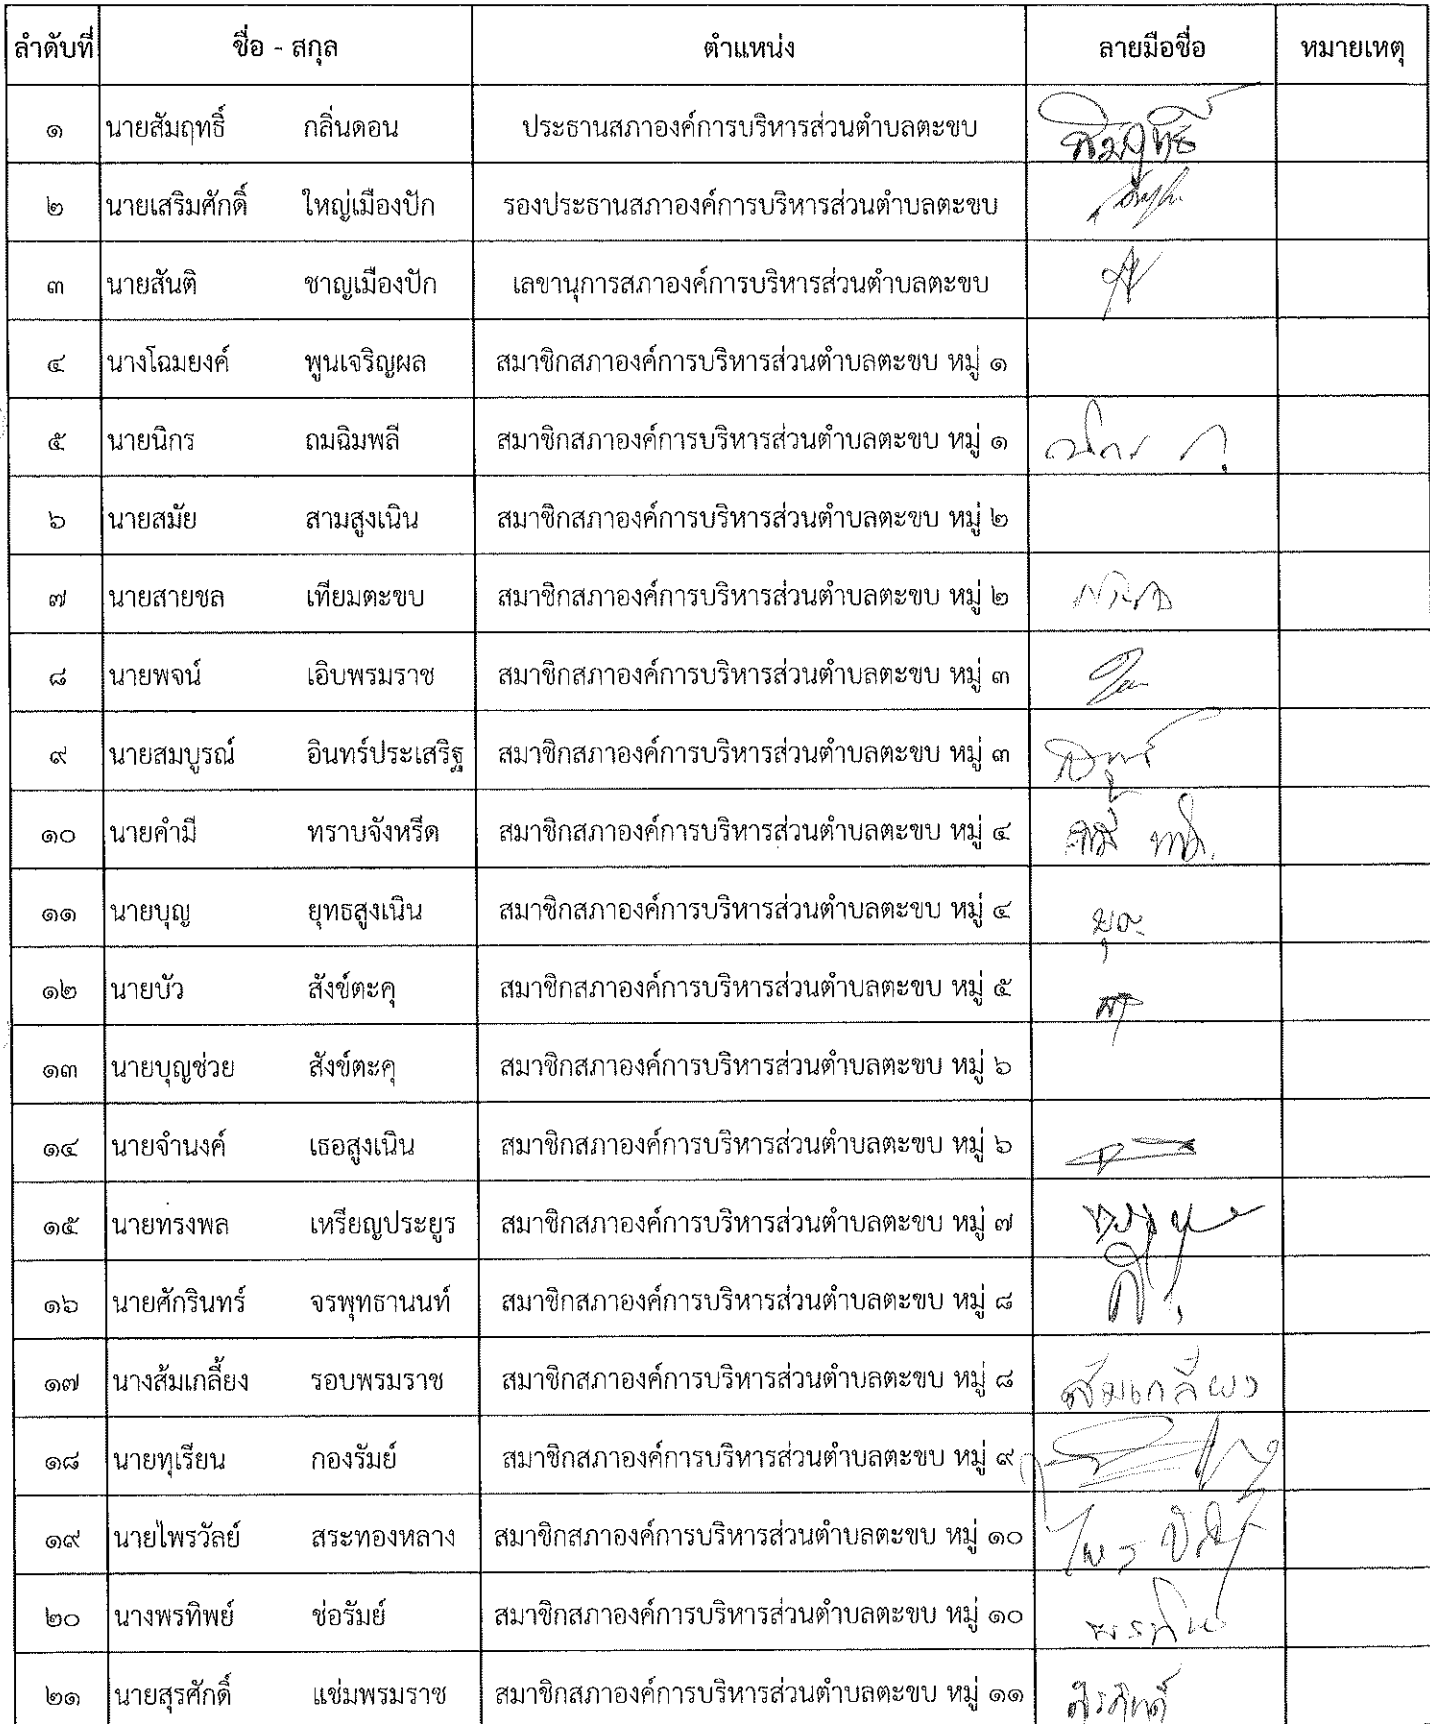 ลำดับที่ ชื่อ - สกุล ตำแหน่ง ลายมือชื่อ หมายเหตุ
๑ นายสัมฤทธิ์ กลิ่นดอน ประธานสภาองค์การบริหารส่วนตำบลตะขบ สัมฤทธิ์
๒ นายเสริมศักดิ์ ใหญ่เมืองปัก รองประธานสภาองค์การบริหารส่วนตำบลตะขบ
๓ นายสันติ ชาญเมืองปัก เลขานุการสภาองค์การบริหารส่วนตำบลตะขบ
๔ นางโฉมยงค์ พูนเจริญผล สมาชิกสภาองค์การบริหารส่วนตำบลตะขบ หมู่ ๑
๕ นายนิกร ถมฉิมพลี สมาชิกสภาองค์การบริหารส่วนตำบลตะขบ หมู่ ๑
๖ นายสมัย สามสูงเนิน สมาชิกสภาองค์การบริหารส่วนตำบลตะขบ หมู่ ๒
๗ นายสายชล เทียมตะขบ สมาชิกสภาองค์การบริหารส่วนตำบลตะขบ หมู่ ๒
๘ นายพจน์ เอิบพรมราช สมาชิกสภาองค์การบริหารส่วนตำบลตะขบ หมู่ ๓
๙ นายสมบูรณ์ อินทร์ประเสริฐ สมาชิกสภาองค์การบริหารส่วนตำบลตะขบ หมู่ ๓
๑๐ นายคำมี ทราบจังหรีด สมาชิกสภาองค์การบริหารส่วนตำบลตะขบ หมู่ ๔
๑๑ นายบุญ ยุทธสูงเนิน สมาชิกสภาองค์การบริหารส่วนตำบลตะขบ หมู่ ๔
๑๒ นายบัว สังข์ตะคุ สมาชิกสภาองค์การบริหารส่วนตำบลตะขบ หมู่ ๕
๑๓ นายบุญช่วย สังข์ตะคุ สมาชิกสภาองค์การบริหารส่วนตำบลตะขบ หมู่ ๖
๑๔ นายจำนงค์ เธอสูงเนิน สมาชิกสภาองค์การบริหารส่วนตำบลตะขบ หมู่ ๖
๑๕ นายทรงพล เหรียญประยูร สมาชิกสภาองค์การบริหารส่วนตำบลตะขบ หมู่ ๗
๑๖ นายศักรินทร์ จรพุทธานนท์ สมาชิกสภาองค์การบริหารส่วนตำบลตะขบ หมู่ ๘
๑๗ นางส้มเกลี้ยง รอบพรมราช สมาชิกสภาองค์การบริหารส่วนตำบลตะขบ หมู่ ๘ ส้มเกลี้ยง
๑๘ นายทุเรียน กองรัมย์ สมาชิกสภาองค์การบริหารส่วนตำบลตะขบ หมู่ ๙
๑๙ นายไพรวัลย์ สระทองหลาง สมาชิกสภาองค์การบริหารส่วนตำบลตะขบ หมู่ ๑๐
๒๐ นางพรทิพย์ ช่อรัมย์ สมาชิกสภาองค์การบริหารส่วนตำบลตะขบ หมู่ ๑๐ พรทิพย์
๒๑ นายสุรศักดิ์ แช่มพรมราช สมาชิกสภาองค์การบริหารส่วนตำบลตะขบ หมู่ ๑๑ สุรศักดิ์